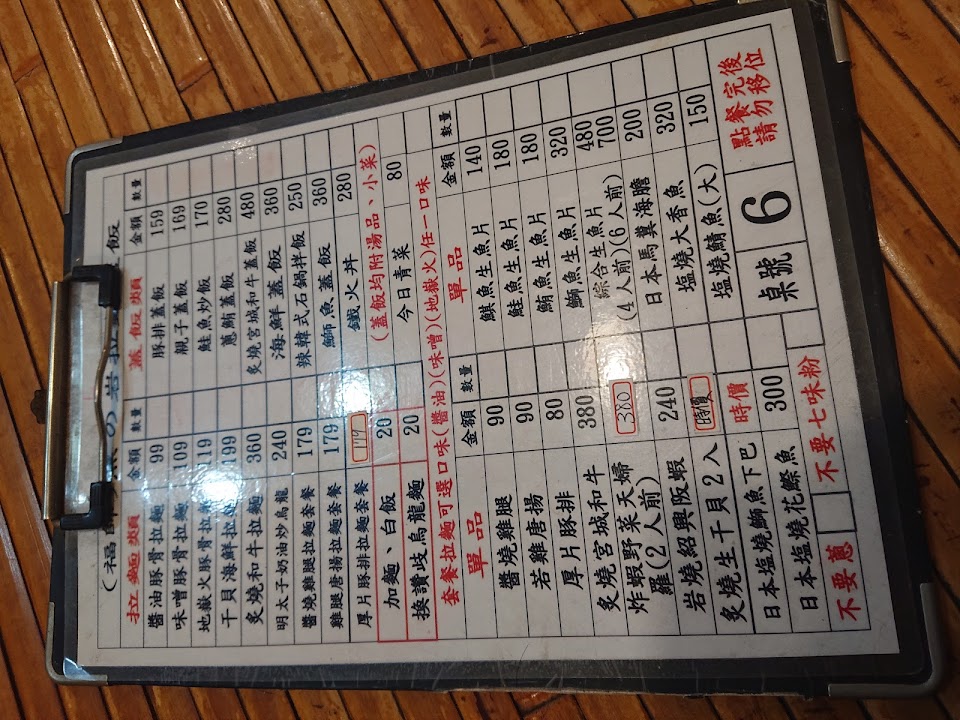 (福 の岩 飯
拉麵類 金額 數量 蓋飯類 金額 數量
醬油豚骨拉麵 99 豚排蓋飯 159
味噌豚骨拉麵 109 親子蓋飯 169
地獄火豚骨拉麵 119 鮭魚炒飯 170
干貝海鮮拉麵 199 蔥鮪蓋飯 280
炙燒和牛拉麵 360 炙燒宮城和牛蓋飯 480
明太子奶油炒烏龍 240 海鮮蓋飯 360
醬燒雞腿拉麵套餐 179 辣韓式石鍋拌飯 250
雞腿唐揚拉麵套餐 179 鰤魚蓋飯 360
厚片豚排拉麵套餐 鐵火丼 280
加麵、白飯 20 (蓋飯均附湯品、小菜)
換讚岐烏龍麵 20 今日青菜 80
套餐拉麵可選口味(醬油)(味噌)(地獄火)任一口味
單品 金額 數量 單品 金額 數量
醬燒雞腿 90 鯕魚生魚片 140
若雞唐揚 90 鮭魚生魚片 180
厚片豚排 80 鮪魚生魚片 180
炙燒宮城和牛 380 鰤魚生魚片 320
炸蝦野菜天婦羅(2人前) 380 綜合生魚片(4人前)(6人前) 480 700
岩燒紹興阪蝦 240 日本馬糞海膽 200
炙燒生干貝2入 時價 塩燒大香魚 320
日本塩燒鰤魚下巴 時價 塩燒鯖魚(大) 150
日本塩燒花鰶魚 300 桌號 6 點餐完後請勿移位
不要蔥 不要七味粉